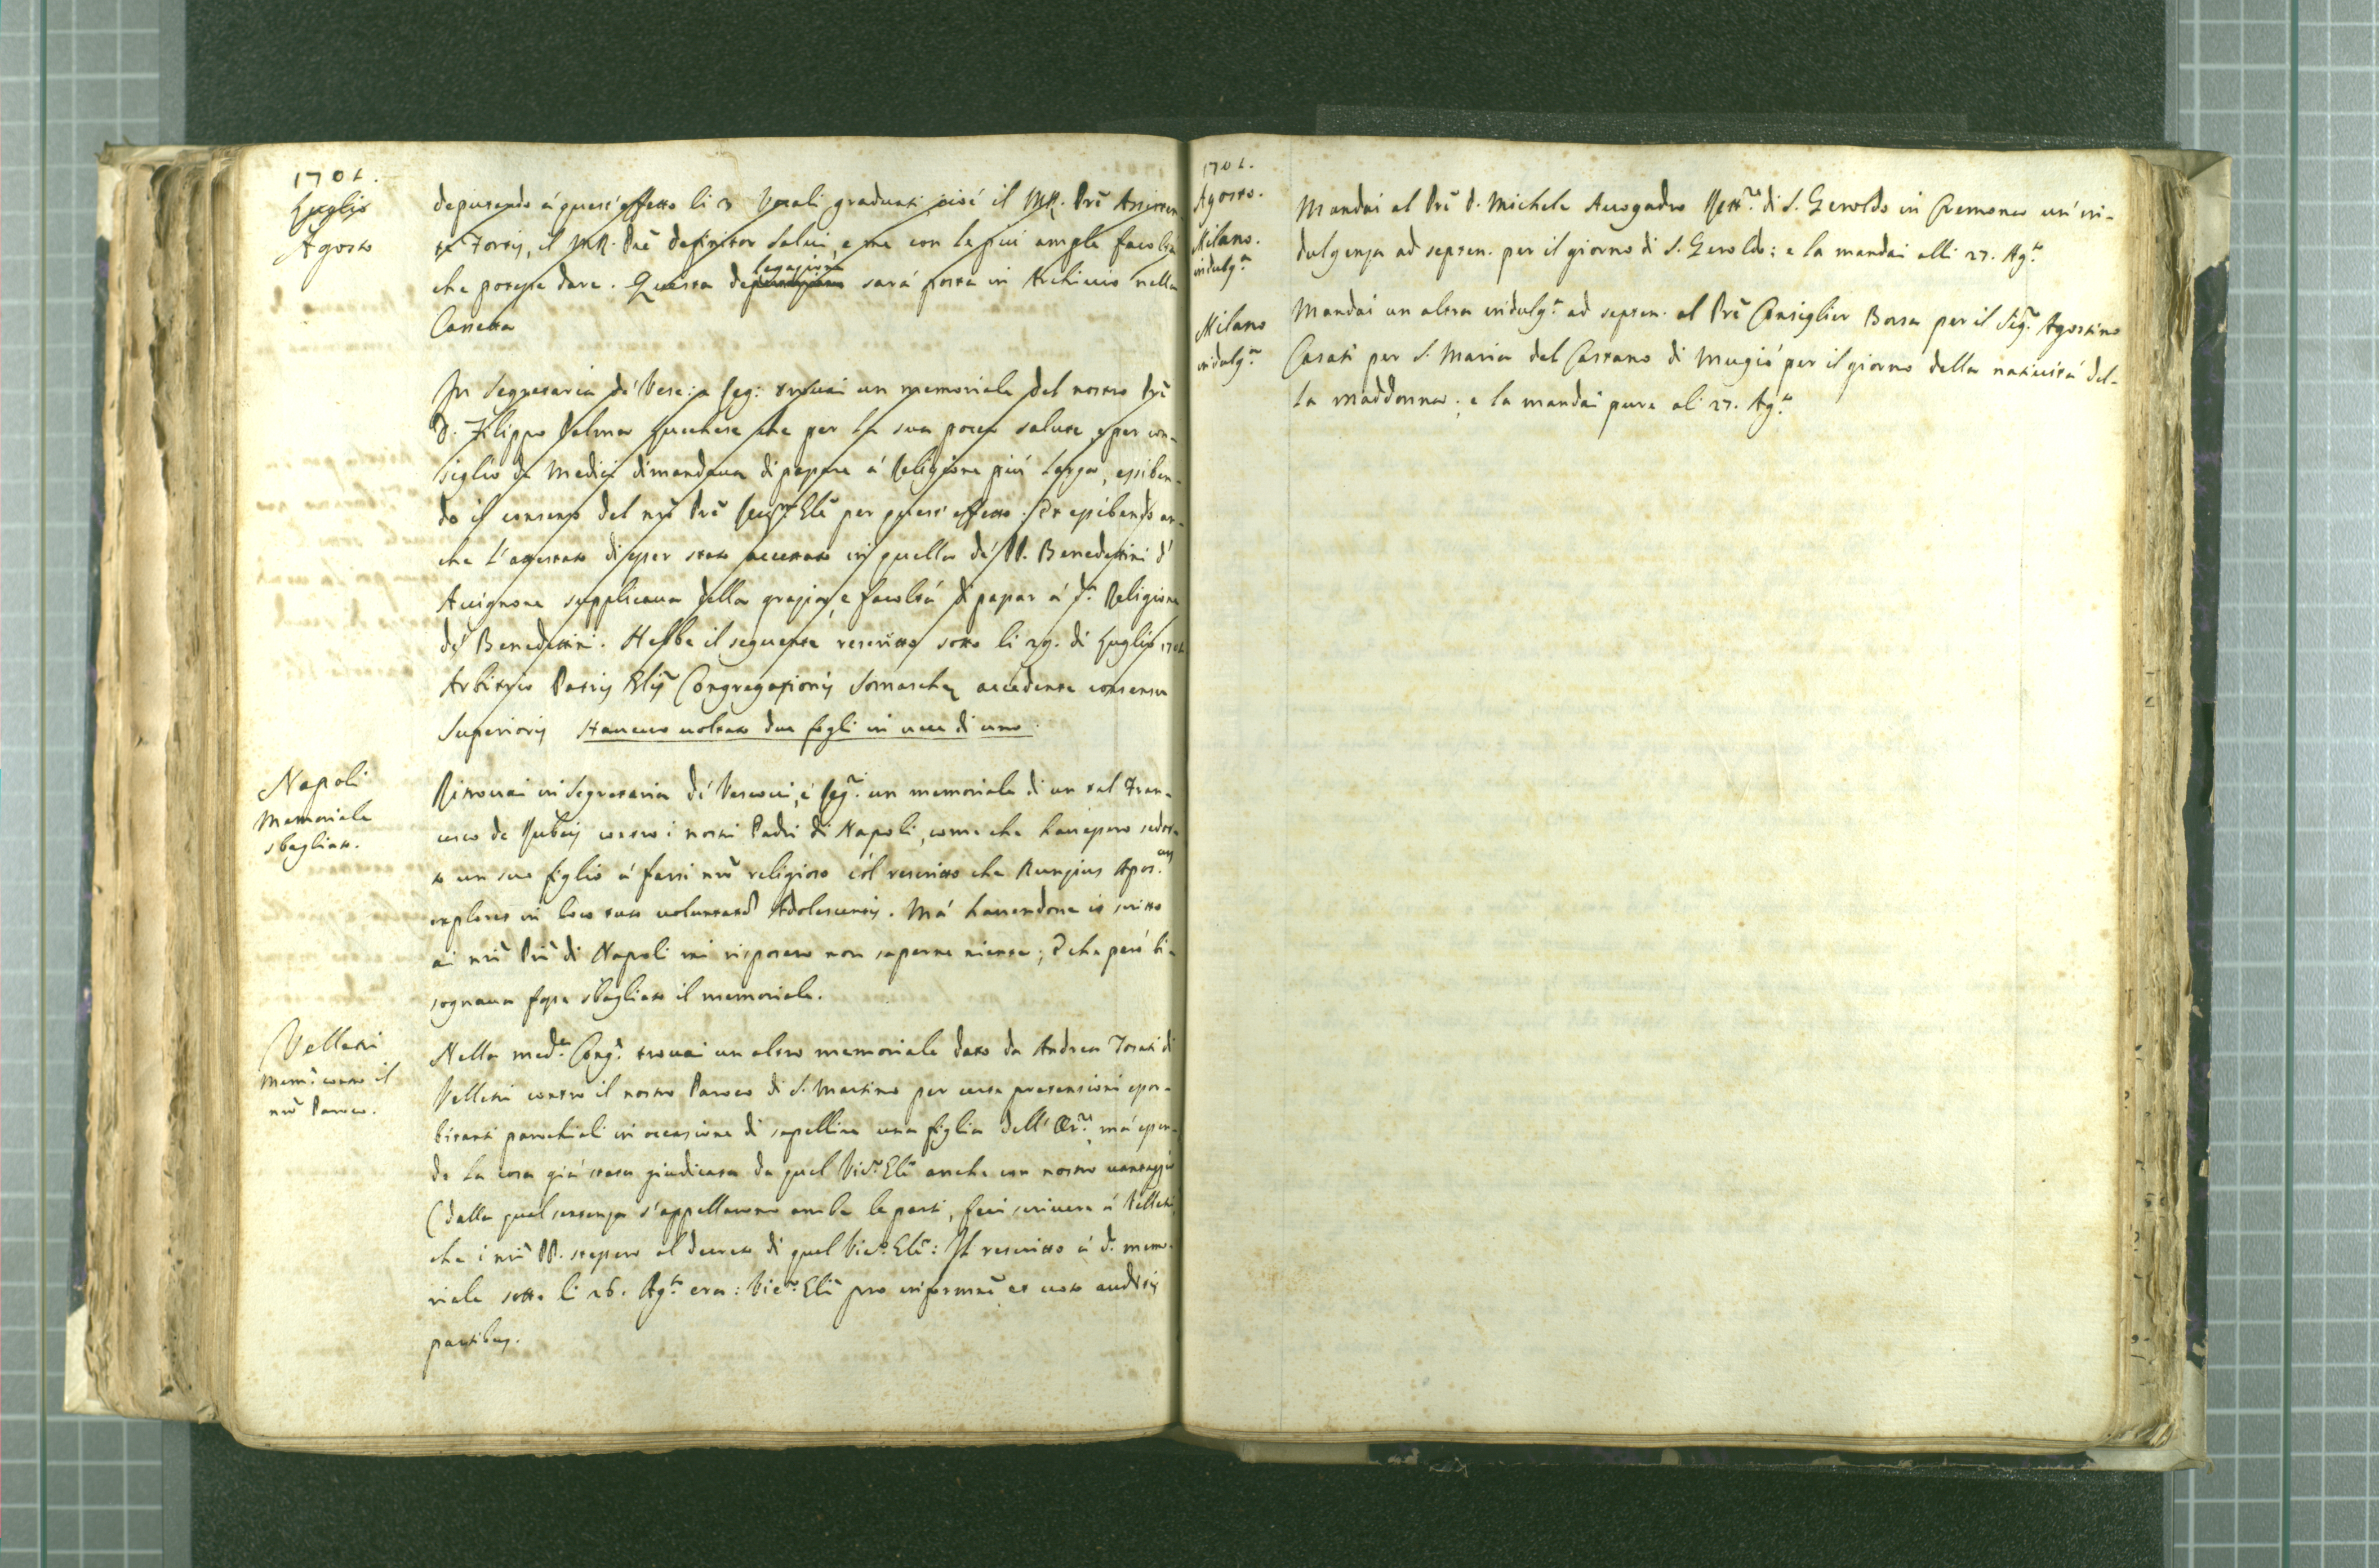 1701.
Luglio
Agosto
deputando á quest'effetto li 3 Vocali graduati, cioé il M.R. Prē Assisten-
te Fortis, il M.R. Prē definitor Salvi, e me con le piu ample facoltà
che potesse dare. Questa de legazione sará posta in Archivio nella
Cassetta
In Segretaria de' Vesc: e Reg: trovai un memoriale del nostro Prē
D. Filippo Palma Lucchese che per la sua poca salute, e per con-
siglio de Medici dimandava di passare á Religione piú larga, essiben-
do il consenso del nrō Prē Gen.le per quest'effetto. Et essibendo an-
che l'attestato di esser stato accettato in quella de' PP. Benedettini d'
Avignone supplicava della grazia, e facoltá di passar á d.a Religione
de' Benedettini. Hebbe il seguente rescritto sotto li 29. di Luglio 1701
Arbitrio Patris Glis Congregationis Somaschæ accedente consensu
Superioris Havevo voltato due fogli in vece di uno.
Napoli
Memoriale
sbagliato.
Ritrovai in Segretaria de' Vescovi, e Reg.ri un memoriale di un tal Fran-
cesco de Rubeis contro i nostri Padri di Napoli, come che havessero sedot-
to un suo figlio á farsi nrō religioso có'l rescritto che Nunzius Apos.cus
exploret in loco tuto voluntatē Adolescentis. Má havendone io scritto
ai nrī Prī di Napoli mi risposero non saperne niente; e che peró bi-
sognava fosse sbagliato il memoriale.
Velletri
Mem.e contro il
nrō Paroco.
Nella med.a Cong.e trovai un altro memoriale dato da Andrea Torati di
Velletri contro il nostro Paroco di S. Martino per certe pretensioni esor-
bitanti parochiali in occasione di sepellire una figlia dell' Or.re, má essen-
do la cosa giá stata giudicata da quel Vic.o Glē anche con nostro vantaggio
(dalla qual sentenza s'appellarono ambe le parti, feci scrivere á Velletri,
che i nrī PP. stessero al decreto di quel Vic.o Glē: Il rescritto á d.o memo-
riale sotto li 26. Ag.to era: Vic.o Glī pro informnē et voto auditis
partibus.
1701.
Agosto.
Milano.
indulg.a
Mandai al Prē D. Michele Avogadro Rett.re di S. Geroldo in Cremona un' in-
dulgenza ad septen. per il giorno di S. Geroldo: e la mandai alli 27. Ag.to
Milano
indulg.a
Mandai un altra indulg.a ad septen. al Prē Consiglier Borsa per il Sig.r Agostino
Casati per S. Maria del Castano di Mugió per il giorno della nativitá del-
la maddonna; e la mandai pure ali 27. Ag.to